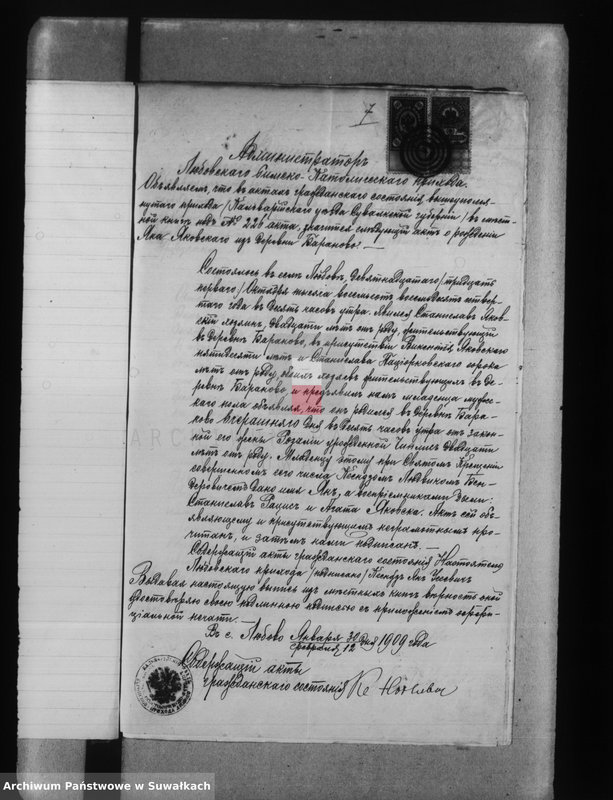 7
Администраторъ
Любовскаго Римско-Католическаго прихода.
Объявляетъ, что въ актахъ гражданскаго состоянія вышеупомя-
нутаго прихода /Кальварійскаго уѣзда Сувалкской губерніи/ въ мѣст-
ной книгѣ подъ № 226 акта, значится слѣдующій актъ о рожденіи
Яна Яковскаго изъ деревни Бараново: —
Состоялось въ селѣ Любовѣ, девятнадцатаго /тридцать
перваго/ Октября тысяча восемьсотъ восемьдесятъ четвер-
таго года въ десять часовъ утра. Явился Станиславъ Яков-
скій, двадцати лѣтъ отъ роду, жительствующій
въ деревнѣ Бараново, въ присутствіи Викентія Яковскаго
пятидесяти лѣтъ и Станислава сорока
лѣтъ отъ роду, обоихъ жительствующихъ въ де-
ревнѣ Бараново, и предъявилъ намъ младенца мужес-
каго пола объявляя, что онъ родился въ деревнѣ Бара-
ново вчерашняго дня въ десять часовъ утра отъ закон-
ной его жены Розаліи урожденной двадцати
лѣтъ отъ роду. Младенцу этому при Святомъ Крещеніи
совершенномъ сего числа Ксендзомъ Людвикомъ Бен-
деровичемъ дано имя Янъ, а воспріемниками были:
Станиславъ и Агата Яковска. Актъ сей объ-
являющему и присутствующимъ неграмотнымъ про-
читанъ, и затѣмъ нами подписанъ. —
Содержащій акты гражданскаго состоянія Настоятель
Любовскаго прихода /подписано/ Ксендзъ Янъ
Выдавая настоящую выпись изъ мѣстныхъ книгъ вѣрность оной
удостовѣряю своею подписью съ приложеніемъ оффи-
ціальной печати. —
Въ с. Любово Января 30 дня 1909 года
Февраля 12
Содержащій акты
гражданскаго состоянія Кс
Archiwum Państwowe w Suwałkach